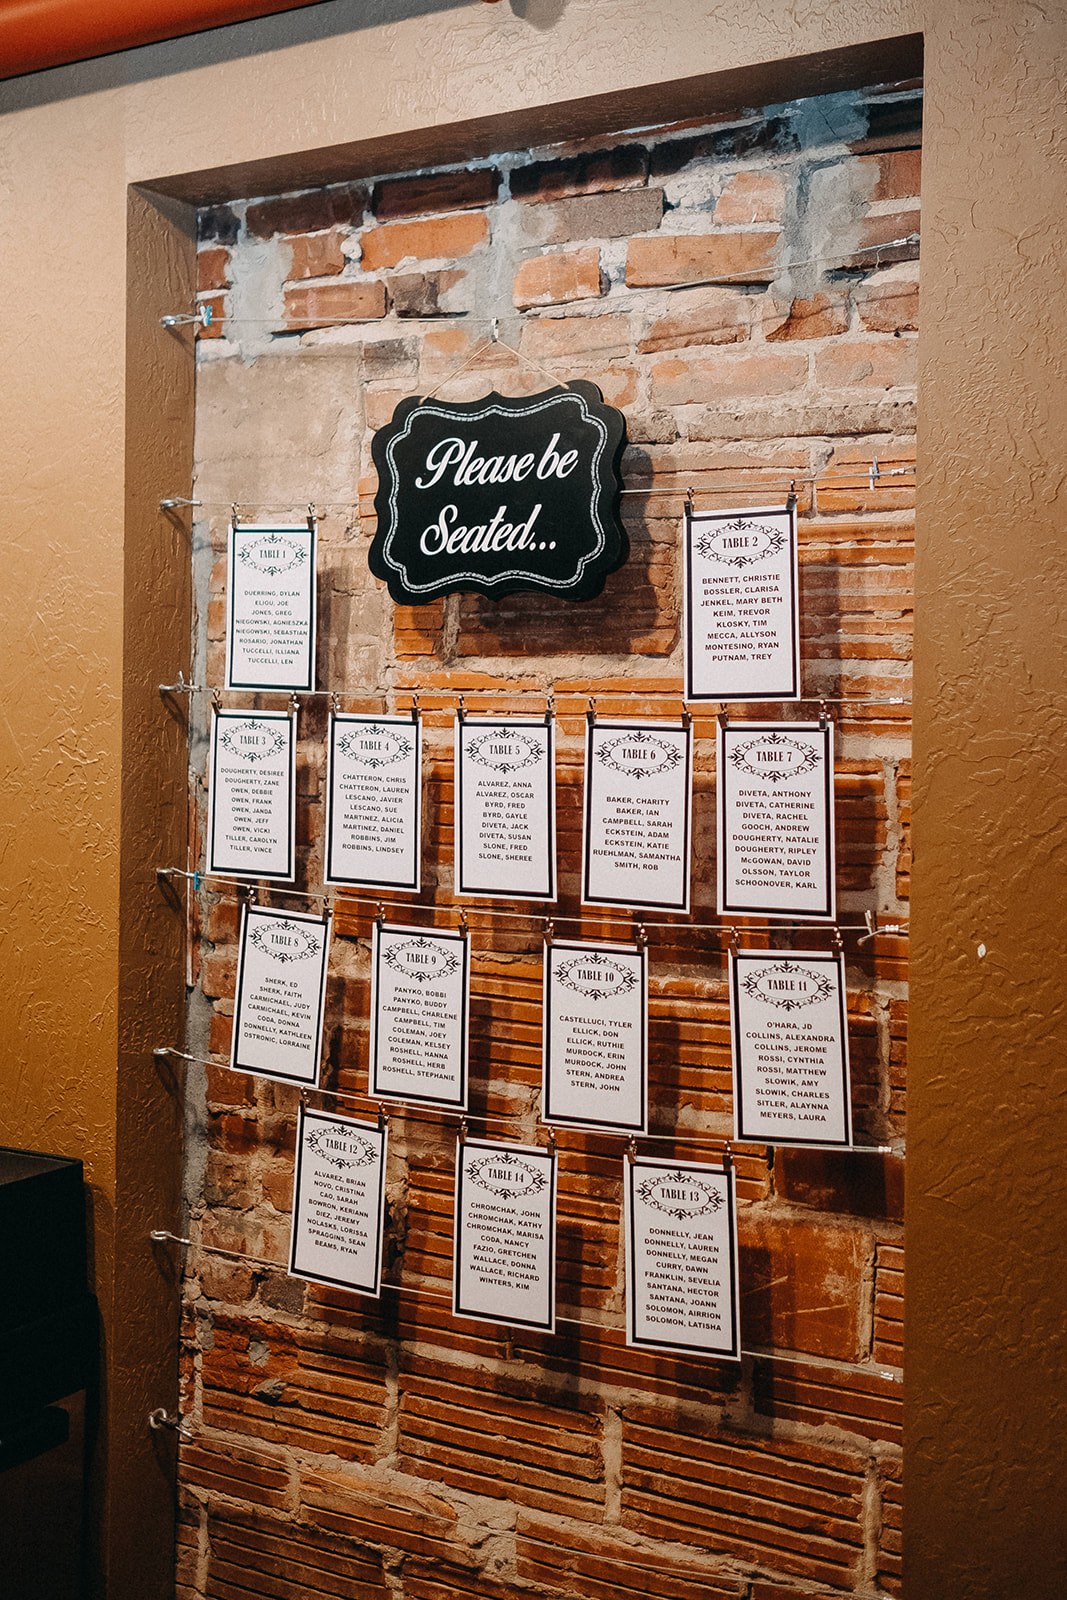 Please be
Seated...
TABLE 1
DUERRING, DYLAN
EIJOU, JOE
JONES, GREG
NIEGOWSKI, AGNIESZKA
NIEGOWSKI, SEBASTIAN
ROSARIO, JONATHAN
TUCCELLI, ILLIANA
TUCCELLI, LEN
TABLE 2
BENNETT, CHRISTIE
BOSSLER, CLARISA
JENKEL, MARY BETH
KEIM, TREVOR
KLOSKY, TIM
MECCA, ALLYSON
MONTESINO, RYAN
PUTNAM, TREY
TABLE 3
DOUGHERTY, DESIREE
DOUGHERTY, ZANE
OWEN, DEBBIE
OWEN, FRANK
OWEN, JANDA
OWEN, JEFF
OWEN, VICKI
TILLER, CAROLYN
TILLER, VINCE
TABLE 4
CHATTERON, CHRIS
CHATTERON, LAUREN
LESCANO, JAVIER
LESCANO, SUE
MARTINEZ, ALICIA
MARTINEZ, DANIEL
ROBBINS, JIM
ROBBINS, LINDSEY
TABLE 5
ALVAREZ, ANNA
ALVAREZ, OSCAR
BYRD, FRED
BYRD, GAYLE
DIVETA, JACK
DIVETA, SUSAN
SLONE, FRED
SLONE, SHEREE
TABLE 6
BAKER, CHARITY
BAKER, IAN
CAMPBELL, SARAH
ECKSTEIN, ADAM
ECKSTEIN, KATIE
RUEHLMAN, SAMANTHA
SMITH, ROB
TABLE 7
DIVETA, ANTHONY
DIVETA, CATHERINE
DIVETA, RACHEL
GOOCH, ANDREW
DOUGHERTY, NATALIE
DOUGHERTY, RIPLEY
McGOWAN, DAVID
OLSSON, TAYLOR
SCHOONOVER, KARL
TABLE 8
SHERK, ED
SHERK, FAITH
CARMICHAEL, JUDY
CARMICHAEL, KEVIN
CODA, DONNA
DONNELLY, KATHLEEN
OSTRONIC, LORRAINE
TABLE 9
PANYKO, BOBBI
PANYKO, BUDDY
CAMPBELL, CHARLENE
CAMPBELL, TIM
COLEMAN, JOEY
COLEMAN, KELSEY
ROSHELL, HANNA
ROSHELL, HERB
ROSHELL, STEPHANIE
TABLE 10
CASTELLUCI, TYLER
ELLICK, DON
ELLICK, RUTHIE
MURDOCK, ERIN
MURDOCK, JOHN
STERN, ANDREA
STERN, JOHN
TABLE 11
O'HARA, JD
COLLINS, ALEXANDRA
COLLINS, JEROME
ROSSI, CYNTHIA
ROSSI, MATTHEW
SLOWIK, AMY
SLOWIK, CHARLES
SITLER, ALAYNNA
MEYERS, LAURA
TABLE 12
ALVAREZ, BRIAN
NOVO, CRISTINA
CAO, SARAH
BOWRON, KERIANN
DIEZ, JEREMY
NOLASKS, LORISSA
SPRAGGINS, SEAN
BEAMS, RYAN
TABLE 14
CHROMCHAK, JOHN
CHROMCHAK, KATHY
CHROMCHAK, MARISA
CODA, NANCY
FAZIO, GRETCHEN
WALLACE, DONNA
WALLACE, RICHARD
WINTERS, KIM
TABLE 13
DONNELLY, JEAN
DONNELLY, LAUREN
DONNELLY, MEGAN
CURRY, DAWN
FRANKLIN, SEVELIA
SANTANA, HECTOR
SANTANA, JOANN
SOLOMON, AIRRION
SOLOMON, LATISHA